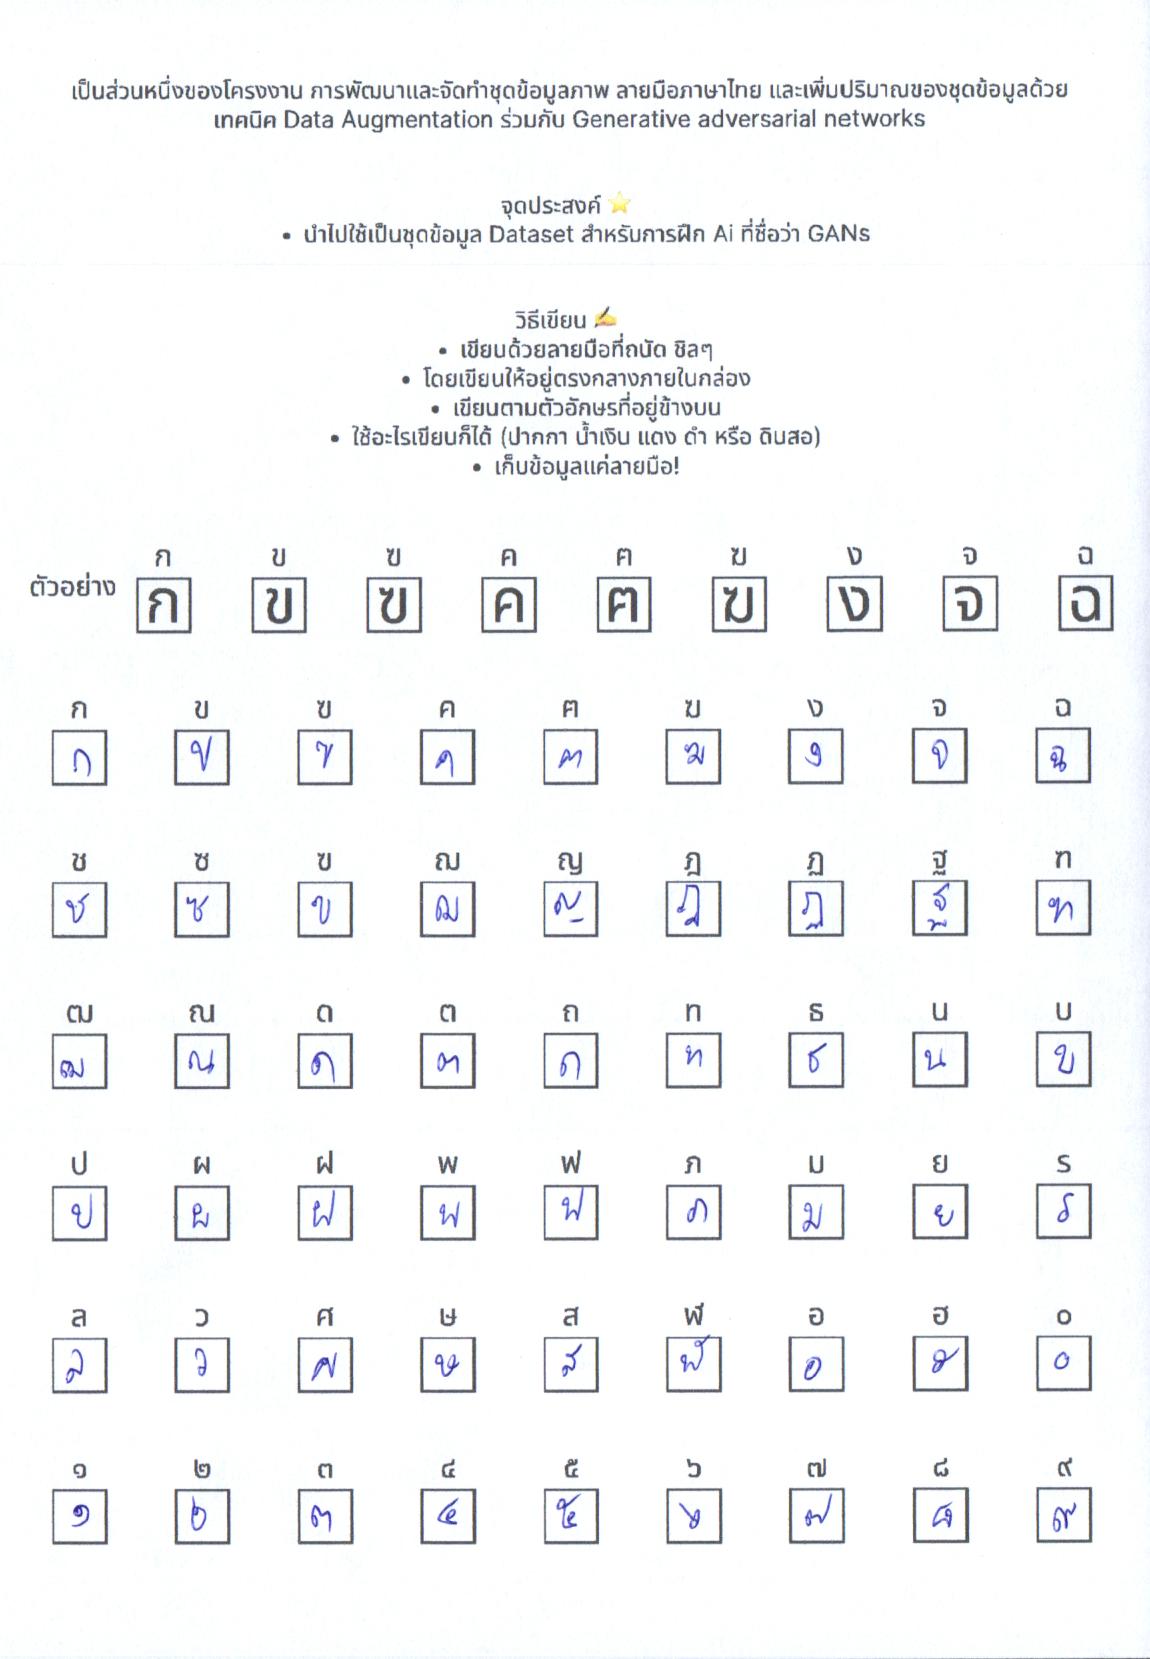 เป็นส่วนหนึ่งของโครงงาน การพัฒนาและจัดทำชุดข้อมูลภาพ ลายมือภาษาไทย และเพิ่มปริมาณของชุดข้อมูลด้วย
เทคนิค Data Augmentation ร่วมกับ Generative adversarial networks
จุดประสงค์ ⭐
• นำไปใช้เป็นชุดข้อมูล Dataset สำหรับการฝึก Ai ที่ชื่อว่า GANs
วิธีเขียน ✍️
• เขียนด้วยลายมือที่ถนัด ชิลๆ
• โดยเขียนให้อยู่ตรงกลางภายในกล่อง
• เขียนตามตัวอักษรที่อยู่ข้างบน
• ใช้อะไรเขียนก็ได้ (ปากกา น้ำเงิน แดง ดำ หรือ ดินสอ)
• เก็บข้อมูลแค่ลายมือ!
ก ข ฃ ค ฅ ฆ ง จ ฉ
ตัวอย่าง ก ข ฃ ค ฅ ฆ ง จ ฉ
ก ข ฃ ค ฅ ฆ ง จ ฉ
ก ข ฃ ค ฅ ฆ ง จ ฉ
ช ซ ฃ ฌ ญ ฎ ฏ ฐ ฑ
ช ซ ข ฌ ญ ฎ ฏ ฐ ฑ
ฒ ณ ด ต ถ ท ธ น บ
ฒ ณ ด ต ถ ท ธ น บ
ป ผ ฝ พ ฟ ภ ม ย ร
ป ผ ฝ พ ฟ ภ ม ย ร
ล ว ศ ษ ส ฬ อ ฮ ๐
ล ว ศ ษ ส ฬ อ ฮ ๐
๑ ๒ ๓ ๔ ๕ ๖ ๗ ๘ ๙
๑ ๒ ๓ ๔ ๕ ๖ ๗ ๘ ๙